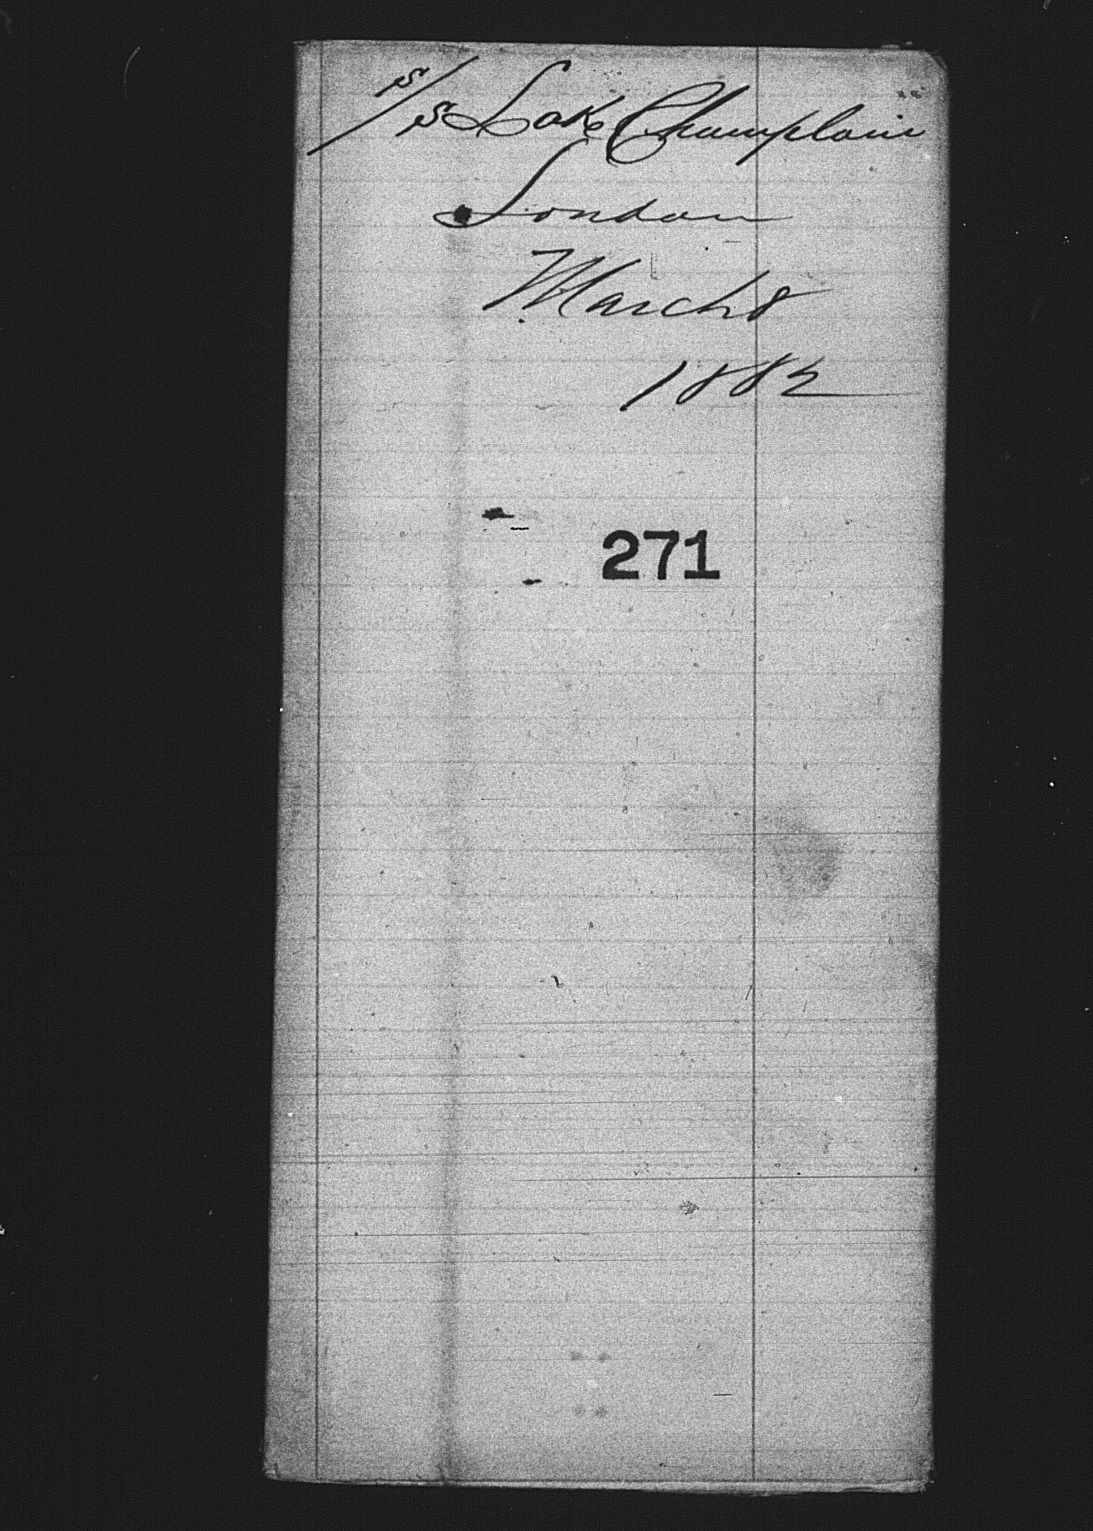 S/S Lake Champlain
London
March 8
1882
271